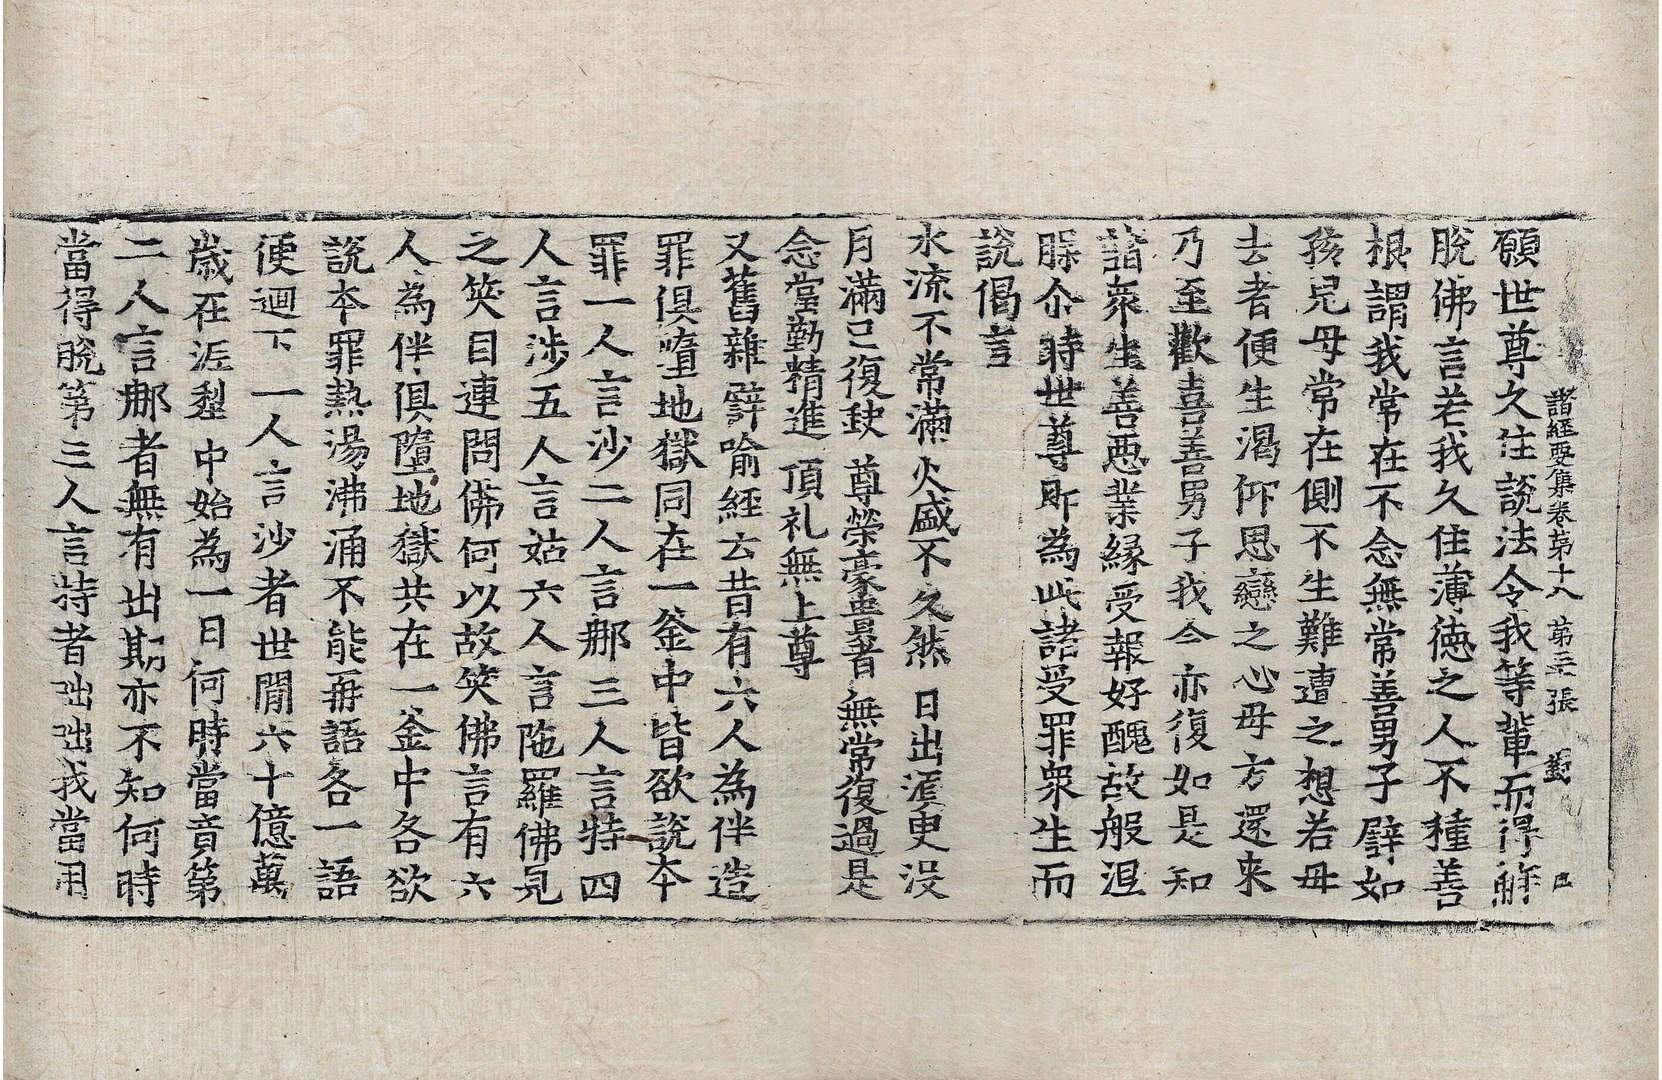 諸經要集卷第十八 第三張
願世尊久住說法令我等輩而得解
脫佛言若我久住薄德之人不種善
根謂我常在不念無常善男子譬如
孩兒母常在側不生難遭之想若母
去者便生渴仰思戀之心母方還来
乃至歡喜善男子我今亦復如是知
諸衆生善惡業緣受報好醜故般涅
腂尒時世尊即為此諸受罪衆生而
說偈言
水流不常滿 火盛不久然 日出湏臾没
月滿已復缺 尊榮豪貴者 無常復過是
念當勤精進 頂礼無上尊
又舊雜譬喻經云昔有六人為伴造
罪俱墮地獄同在一釜中皆欲說本
罪一人言沙二人言那三人言特四
人言涉五人言姑六人言陁羅佛見
之笑目連問佛何以故笑佛言有六
人為伴俱墮地獄共在一釜中各欲
說本罪熱湯沸涌不能再語各一語
便迴下一人言沙者世間六十億萬
歲在泥犁中始為一日何時當竟第
二人言那者無有出期亦不知何時
當得脫第三人言特者咄咄我當用